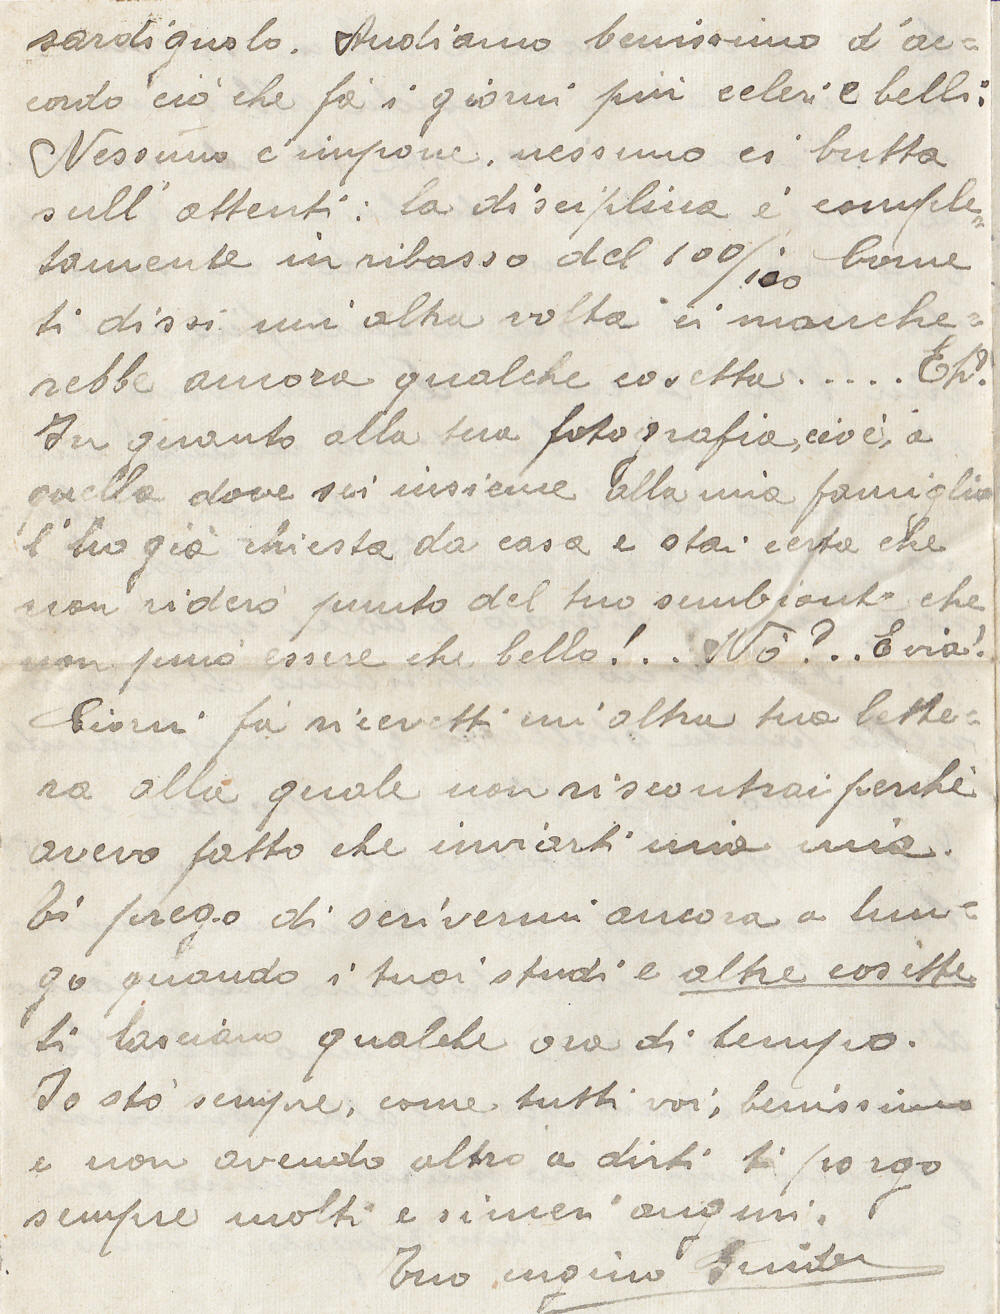 sardignolo. Andiamo benissimo d'ac=
cordo ciò che fà i giorni più celeri e belli:
Nessuno c'impone, nessuno ci butta
sull'attenti: la disciplina è comple=
tamente in ribasso del 100/100 Come
ti dissi un'altra volta ci manche=
rebbe ancora qualche cosetta..... Eh?
In quanto alla tua fotografia, cioè, a
quella dove sei insieme alla mia famiglia
l'ho già chiesta da casa e stai certa che
non riderò punto del tuo sembiante che
non può essere che bello!.. Nò?.. E via!
Giorni fà ricevetti un'altra tua lette=
ra alla quale non riscontrai perchè
avevo fatto che inviarti una mia.
Ti prego di scrivermi ancora a lun=
go quando i tuoi studi e altre cosette
ti lasciano qualche ora di tempo.
Io stò sempre, come tutti voi, benissimo
e non avendo altro a dirti ti porgo
sempre molti e sinceri auguri.
Tuo cugino